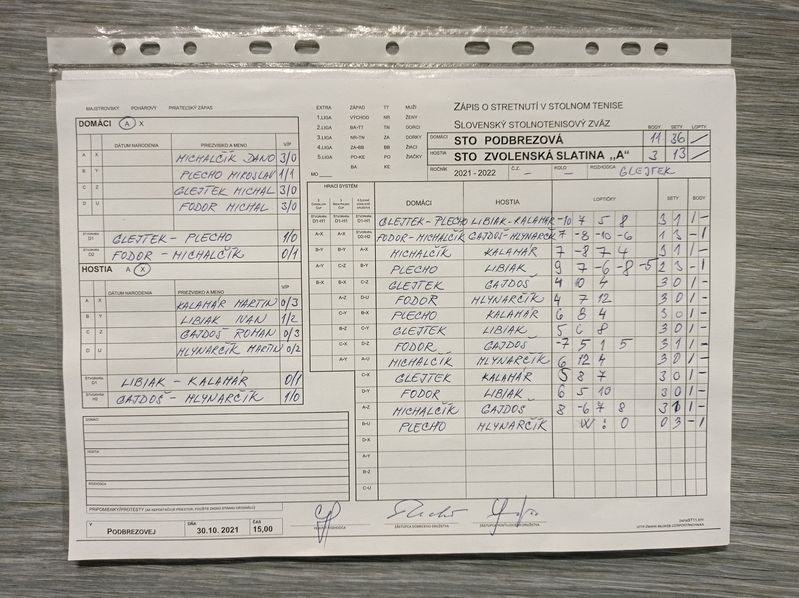 MAJSTROVSKÝ POHÁROVÝ PRIATEĽSKÝ ZÁPAS
DOMÁCI A X
DÁTUM NARODENIA PRIEZVISKO A MENO V/P
A X MICHALČÍK DANO 3/0
B Y PLECHO MIROSLAV 1/1
C Z GLEJTEK MICHAL 3/0
D U FODOR MICHAL 3/0
ŠTVORHRA D1 GLEJTEK - PLECHO 1/0
ŠTVORHRA D2 FODOR - MICHALČÍK 0/1
HOSTIA A X
DÁTUM NARODENIA PRIEZVISKO A MENO V/P
A X KALAMÁR MARTIN 0/3
B Y LIBIAK IVAN 1/2
C Z GAJDOŠ ROMAN 0/3
D U HLYNARČÍK MARTIN 0/2
ŠTVORHRA LIBIAK - KALAMÁR 0/1
ŠTVORHRA GAJDOŠ - HLYNARČÍK 1/0
DOMÁCI
HOSTIA
ROZHODCA
PRIPOMIENKY/PROTESTY
V PODBREZOVEJ DŇA 30.10.2021 ČAS 15,00
EXTRA ZÁPAD TT MUŽI
1.LIGA VÝCHOD NR ŽENY
2.LIGA BA-TT TN DORCI
3.LIGA NR-TN ZA DORKY
4.LIGA ZA-BB BB ŽIACI
5.LIGA PO-KE PO ŽIAČKY
MO BA KE
ZÁPIS O STRETNUTÍ V STOLNOM TENISE
SLOVENSKÝ STOLNOTENISOVÝ ZVÄZ
BODY SETY LOPTY
DOMÁCI STO PODBREZOVÁ 11 36
HOSTIA STO ZVOLENSKÁ SLATINA „A" 3 13
ROČNÍK 2021 - 2022 Č.Z. – KOLO – ROZHODCA GLEJTEK
HRACÍ SYSTÉM
DOMÁCI HOSTIA LOPTIČKY SETY BODY
D1-H1 D1-H1 D1-H1 GLEJTEK - PLECHO LIBIAK - KALAMÁR -10 7 5 8 3 1 1 -
A-X A-X D2-H2 FODOR - MICHALČÍK GAJDOŠ - HLYNARČÍK 7 -8 -10 -6 1 3 - 1
B-Y B-Y A-X MICHALČÍK KALAMÁR 7 -8 7 4 3 1 1 -
A-Y C-Z B-Y PLECHO LIBIAK 9 7 -6 -8 -5 2 3 - 1
B-X B-X C-Z GLEJTEK GAJDOŠ 4 10 4 3 0 1 -
A-Z D-U FODOR HLYNARČÍK 4 7 12 3 0 1 -
C-Y B-X PLECHO KALAMÁR 6 8 4 3 0 1 -
B-Z C-Y GLEJTEK LIBIAK 5 6 8 3 0 1 -
C-X D-Z FODOR GAJDOŠ -7 5 1 5 3 1 1 -
A-Y A-U MICHALČÍK HLYNARČÍK 6 12 4 3 0 1 -
C-X GLEJTEK KALAMÁR 5 8 7 3 0 1 -
D-Y FODOR LIBIAK 6 5 10 3 0 1 -
A-Z MICHALČÍK GAJDOŠ 8 -6 7 8 3 1 1 -
B-U PLECHO HLYNARČÍK W : 0 0 3 - 1
D-X
A-Y
B-Z
C-U